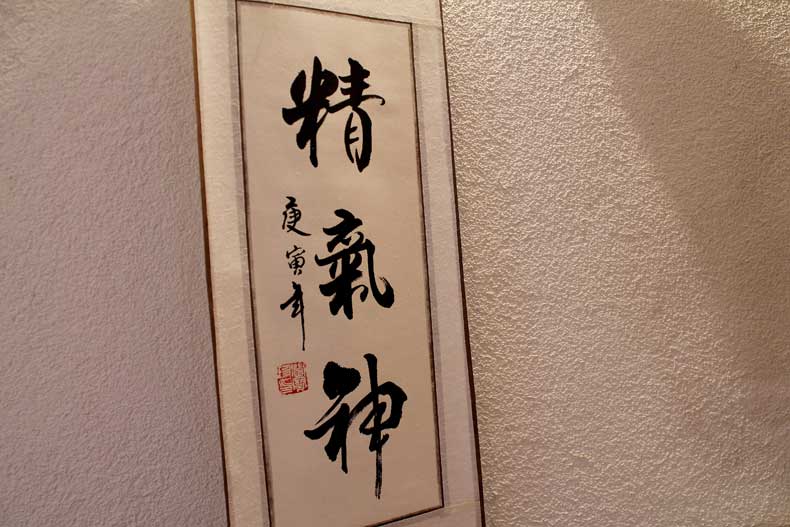 精氣神
庚寅年